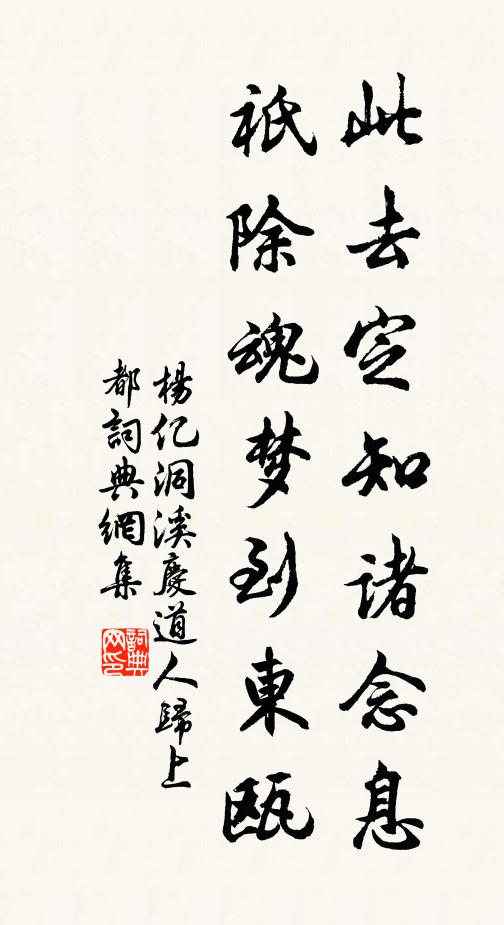 此去定知诸念息
祇除魂梦到東瓯
楊亿洞溪慶道人歸上
都詞典網集
詞典网印